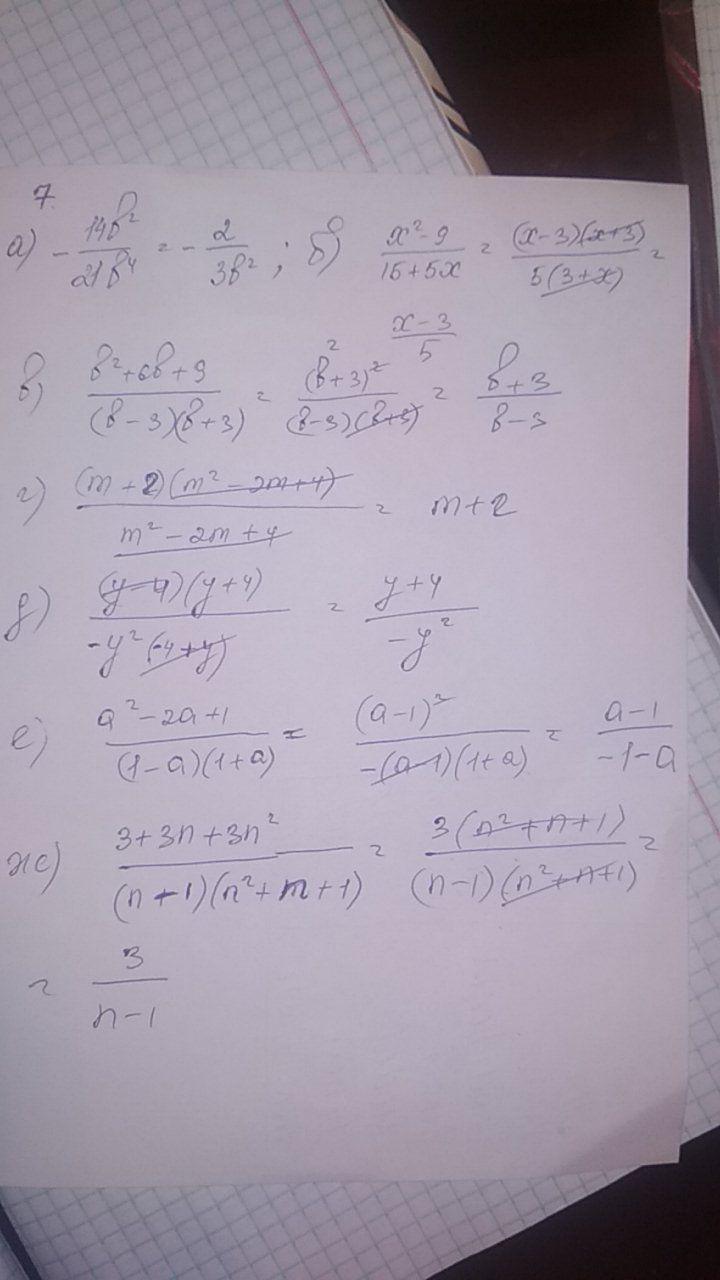 7.
а) -14в²/21в⁴ = -2/3в² ; б) x²-9/15+5x = (x-3)(x+3)/5(3+x) =
x-3/5
в) в²+6в+9/(в-3)(в+3) = (в+3)²/(в-3)(в+3) = в+3/в-3
г) (m+2)(m²-2m+4)/m²-2m+4 = m+2
д) (y-4)(y+4)/-y²(-4+y) = y+4/-y²
е) a²-2a+1/(1-a)(1+a) = (a-1)²/-(a-1)(1+a) = a-1/-1-a
ж) 3+3n+3n²/(n-1)(n²+m+1) = 3(n²+n+1)/(n-1)(n²+n+1) =
= 3/n-1